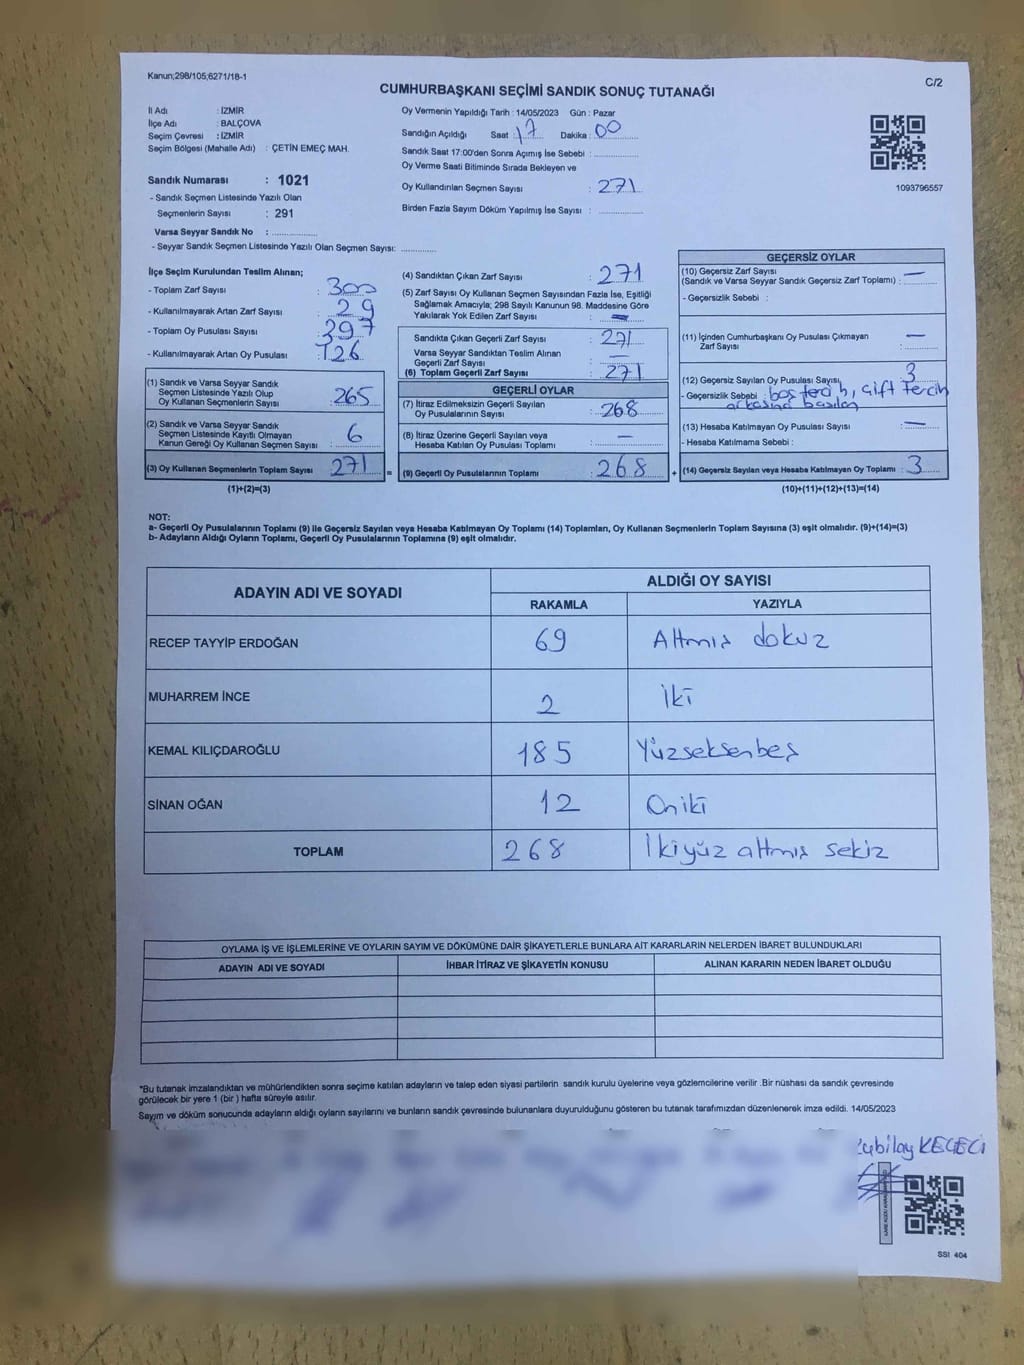 Kanun;298/105;6271/18-1
C/2
CUMHURBAŞKANI SEÇİMİ SANDIK SONUÇ TUTANAĞI
İl Adı : İZMİR
İlçe Adı : BALÇOVA
Seçim Çevresi : İZMİR
Seçim Bölgesi (Mahalle Adı) : ÇETİN EMEÇ MAH.
Sandık Numarası : 1021
- Sandık Seçmen Listesinde Yazılı Olan
Seçmenlerin Sayısı : 291
Varsa Seyyar Sandık No : ..............
- Seyyar Sandık Seçmen Listesinde Yazılı Olan Seçmen Sayısı: ............
Oy Vermenin Yapıldığı Tarih : 14/05/2023 Gün : Pazar
Sandığın Açıldığı Saat : 17 Dakika : 00
Sandık Saat 17:00'den Sonra Açımış İse Sebebi : ..............
Oy Verme Saati Bitiminde Sırada Bekleyen ve
Oy Kullandırılan Seçmen Sayısı : 271
Birden Fazla Sayım Döküm Yapılmış İse Sayısı : ..............
1093796557
İlçe Seçim Kurulundan Teslim Alınan;
- Toplam Zarf Sayısı : 300
- Kullanılmayarak Artan Zarf Sayısı : 29
- Toplam Oy Pusulası Sayısı : 397
- Kullanılmayarak Artan Oy Pusulası : 126
(1) Sandık ve Varsa Seyyar Sandık
Seçmen Listesinde Yazılı Olup
Oy Kullanan Seçmenlerin Sayısı : 265
(2) Sandık ve Varsa Seyyar Sandık
Seçmen Listesinde Kayıtlı Olmayan
Kanun Gereği Oy Kullanan Seçmen Sayısı : 6
(3) Oy Kullanan Seçmenlerin Toplam Sayısı : 271 =
(1)+(2)=(3)
(4) Sandıktan Çıkan Zarf Sayısı : 271
(5) Zarf Sayısı Oy Kullanan Seçmen Sayısından Fazla İse, Eşitliği
Sağlamak Amacıyla; 298 Sayılı Kanunun 98. Maddesine Göre
Yakılarak Yok Edilen Zarf Sayısı : —
Sandıkta Çıkan Geçerli Zarf Sayısı : 271
Varsa Seyyar Sandıktan Teslim Alınan
Geçerli Zarf Sayısı : —
(6) Toplam Geçerli Zarf Sayısı : 271
GEÇERLİ OYLAR
(7) İtiraz Edilmeksizin Geçerli Sayılan
Oy Pusulalarının Sayısı : 268
(8) İtiraz Üzerine Geçerli Sayılan veya
Hesaba Katılan Oy Pusulası Toplamı : —
(9) Geçerli Oy Pusulalarının Toplamı : 268 +
GEÇERSİZ OYLAR
(10) Geçersiz Zarf Sayısı
(Sandık ve Varsa Seyyar Sandık Geçersiz Zarf Toplamı) : —
- Geçersizlik Sebebi :
(11) İçinden Cumhurbaşkanı Oy Pusulası Çıkmayan
Zarf Sayısı : —
(12) Geçersiz Sayılan Oy Pusulası Sayısı : 3
- Geçersizlik Sebebi : boş tercih, çift tercih
arkasına basılan
(13) Hesaba Katılmayan Oy Pusulası Sayısı : —
- Hesaba Katılmama Sebebi :
(14) Geçersiz Sayılan veya Hesaba Katılmayan Oy Toplamı : 3
(10)+(11)+(12)+(13)=(14)
NOT:
a- Geçerli Oy Pusulalarının Toplamı (9) ile Geçersiz Sayılan veya Hesaba Katılmayan Oy Toplamı (14) Toplamları, Oy Kullanan Seçmenlerin Toplam Sayısına (3) eşit olmalıdır. (9)+(14)=(3)
b- Adayların Aldığı Oyların Toplamı, Geçerli Oy Pusulalarının Toplamına (9) eşit olmalıdır.
ADAYIN ADI VE SOYADI
ALDIĞI OY SAYISI
RAKAMLA YAZIYLA
RECEP TAYYİP ERDOĞAN 69 Altmış dokuz
MUHARREM İNCE 2 İki
KEMAL KILIÇDAROĞLU 185 Yüzseksenbeş
SİNAN OĞAN 12 Oniki
TOPLAM 268 İkiyüz altmış sekiz
OYLAMA İŞ VE İŞLEMLERİNE VE OYLARIN SAYIM VE DÖKÜMÜNE DAİR ŞİKAYETLERLE BUNLARA AİT KARARLARIN NELERDEN İBARET BULUNDUKLARI
ADAYIN ADI VE SOYADI İHBAR İTİRAZ VE ŞİKAYETİN KONUSU ALINAN KARARIN NEDEN İBARET OLDUĞU
*Bu tutanak imzalandıktan ve mühürlendikten sonra seçime katılan adayların ve talep eden siyasi partilerin sandık kurulu üyelerine veya gözlemcilerine verilir .Bir nüshası da sandık çevresinde
görülecek bir yere 1 (bir ) hafta süreyle asılır.
Sayım ve döküm sonucunda adayların aldığı oyların sayılarını ve bunların sandık çevresinde bulunanlara duyurulduğunu gösteren bu tutanak tarafımızdan düzenlenerek imza edildi. 14/05/2023
KEÇECİ
SSI 404